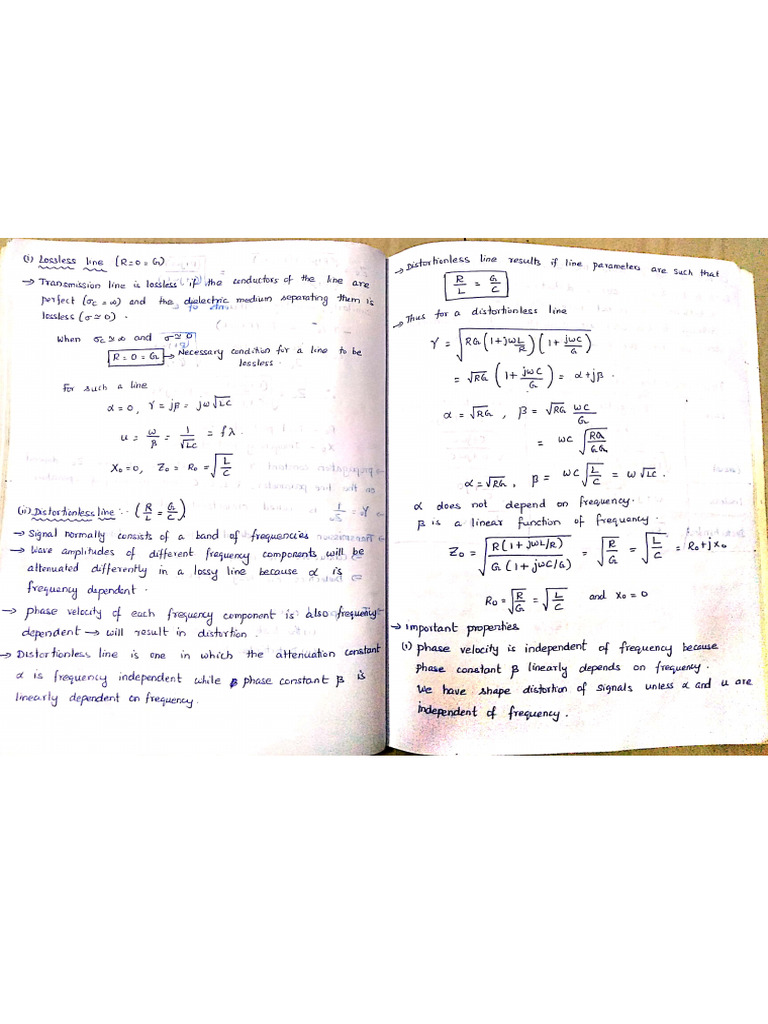 (i) Lossless line (R=0=G)
→ Transmission line is lossless if the conductors of the line are
perfect (σc=∞) and the dielectric medium separating them is
lossless (σ≃0).
when σc≃∞ and σ≃0
R=0=G → Necessary condition for a line to be
lossless.
For such a line
α=0, γ=jβ=jω√LC
u = ω/β = 1/√LC = fλ
X0=0, Z0=R0=√(L/C)
(ii) Distortionless line :- (R/L = G/C)
→ Signal normally consists of a band of frequencies
→ Wave amplitudes of different frequency components will be
attenuated differently in a lossy line because α is
frequency dependent.
→ phase velocity of each frequency component is also frequency
dependent → will result in distortion.
→ Distortionless line is one in which the attenuation constant
α is frequency independent while phase constant β is
linearly dependent on frequency.
→ Distortionless line results if line parameters are such that
R/L = G/C
→ Thus for a distortionless line
γ = √(RG(1+jωL/R)(1+jωC/G))
= √RG (1+jωC/G) = α+jβ.
α=√RG, β=√RG ωC/G
= ωC √(RG/GG)
α=√RG, β = ωC √(L/C) = ω√LC.
α does not depend on frequency.
β is a linear function of frequency.
Z0 = √(R(1+jωL/R)/G(1+jωC/G)) = √(R/G) = √(L/C) = R0+jX0
R0=√(R/G)=√(L/C) and X0=0
→ Important properties
(i) phase velocity is independent of frequency because
phase constant β linearly depends on frequency.
We have shape distortion of signals unless α and u are
independent of frequency.